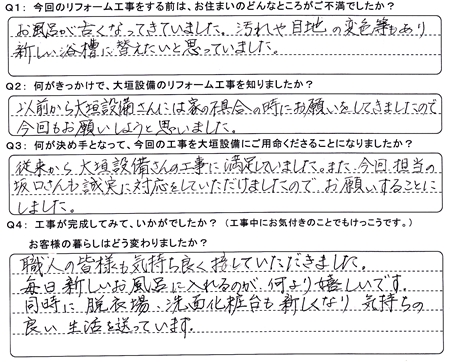 Q1: 今回のリフォーム工事をする前は、お住まいのどんなところがご不満でしたか?
お風呂が古くなってきていました。汚れや目地の変色等もあり
新しい浴槽に替えたいと思っていました。
Q2: 何がきっかけで、大垣設備のリフォーム工事を知りましたか?
以前から大垣設備さんには家の不具合の時にお願いをしてきましたので
今回もお願いしようと思いました。
Q3: 何が決め手となって、今回の工事を大垣設備にご用命くださることになりましたか?
従来から大垣設備さんの工事に満足していました。また今回担当の
坂口さんも誠実に対応をしていただけましたので お願いすることに
しました。
Q4: 工事が完成してみて、いかがでしたか? (工事中にお気付きのことでもけっこうです。)
お客様の暮らしはどう変わりましたか?
職人の皆様も気持ち良く接していただきました。
毎日新しいお風呂に入れるのが何より嬉しいです。
同時に脱衣場、洗面化粧台も新しくなり 気持ちの
良い生活を送っています。